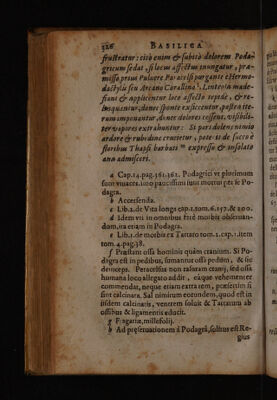 326 BASILICA
frustratur: citò enim & subitò dolorem Poda-
gricum sedat, si locus affectus inungatur, præ-
missa prius Puluere Paracelsi purgante è Hermo-
dactylis seu Arcano Corallino. Linteola made-
fiant & applicentur loco affecto tepidè, & re-
linquantur, donec sponte exiccentur, postea ite-
rum imponantur, donec dolores cessent, visibili-
ter vapores extrahuntur: Si pars dolens nimio
ardore & rubedine crucietur, potest de succo è
floribus Thapsi barbati expresso & insolato
ana admisceri.
a Cap.14.pag.361.362. Podagrici vt plurimum
sunt viuaces, imo paucissimi sunt mortui per se Po-
dagra.
b Accersenda.
c Lib.2.de Vita longa cap.1.tom.6.157.& 200.
d Idem vti in omnibus ferè morbis obseruan-
dom, ita etiam in Podagra.
e Lib.1.de morbis ex Tartaro tom.2.cap.1.item
tom.4.pag.38.
f Præstant ossa hominis quàm cranium. Si Po-
dagra est in pedibus, sumantur ossa pedum, & sic
deinceps. Paracelsus non caluaum cranij, sed ossa
humana loco allegato addit, eáque vehementer
commendat, neque etiam extra rem, præsertim si
sint calcinata. Sal nimirum eorundem, quod est in
iisdem calcinatis, venerem soluit & Tartarum ab
ossibus & ligamentis educit.
g Fragariæ, millefolij.
h Ad præseruationem à Podagra, solitus est Re-
gius